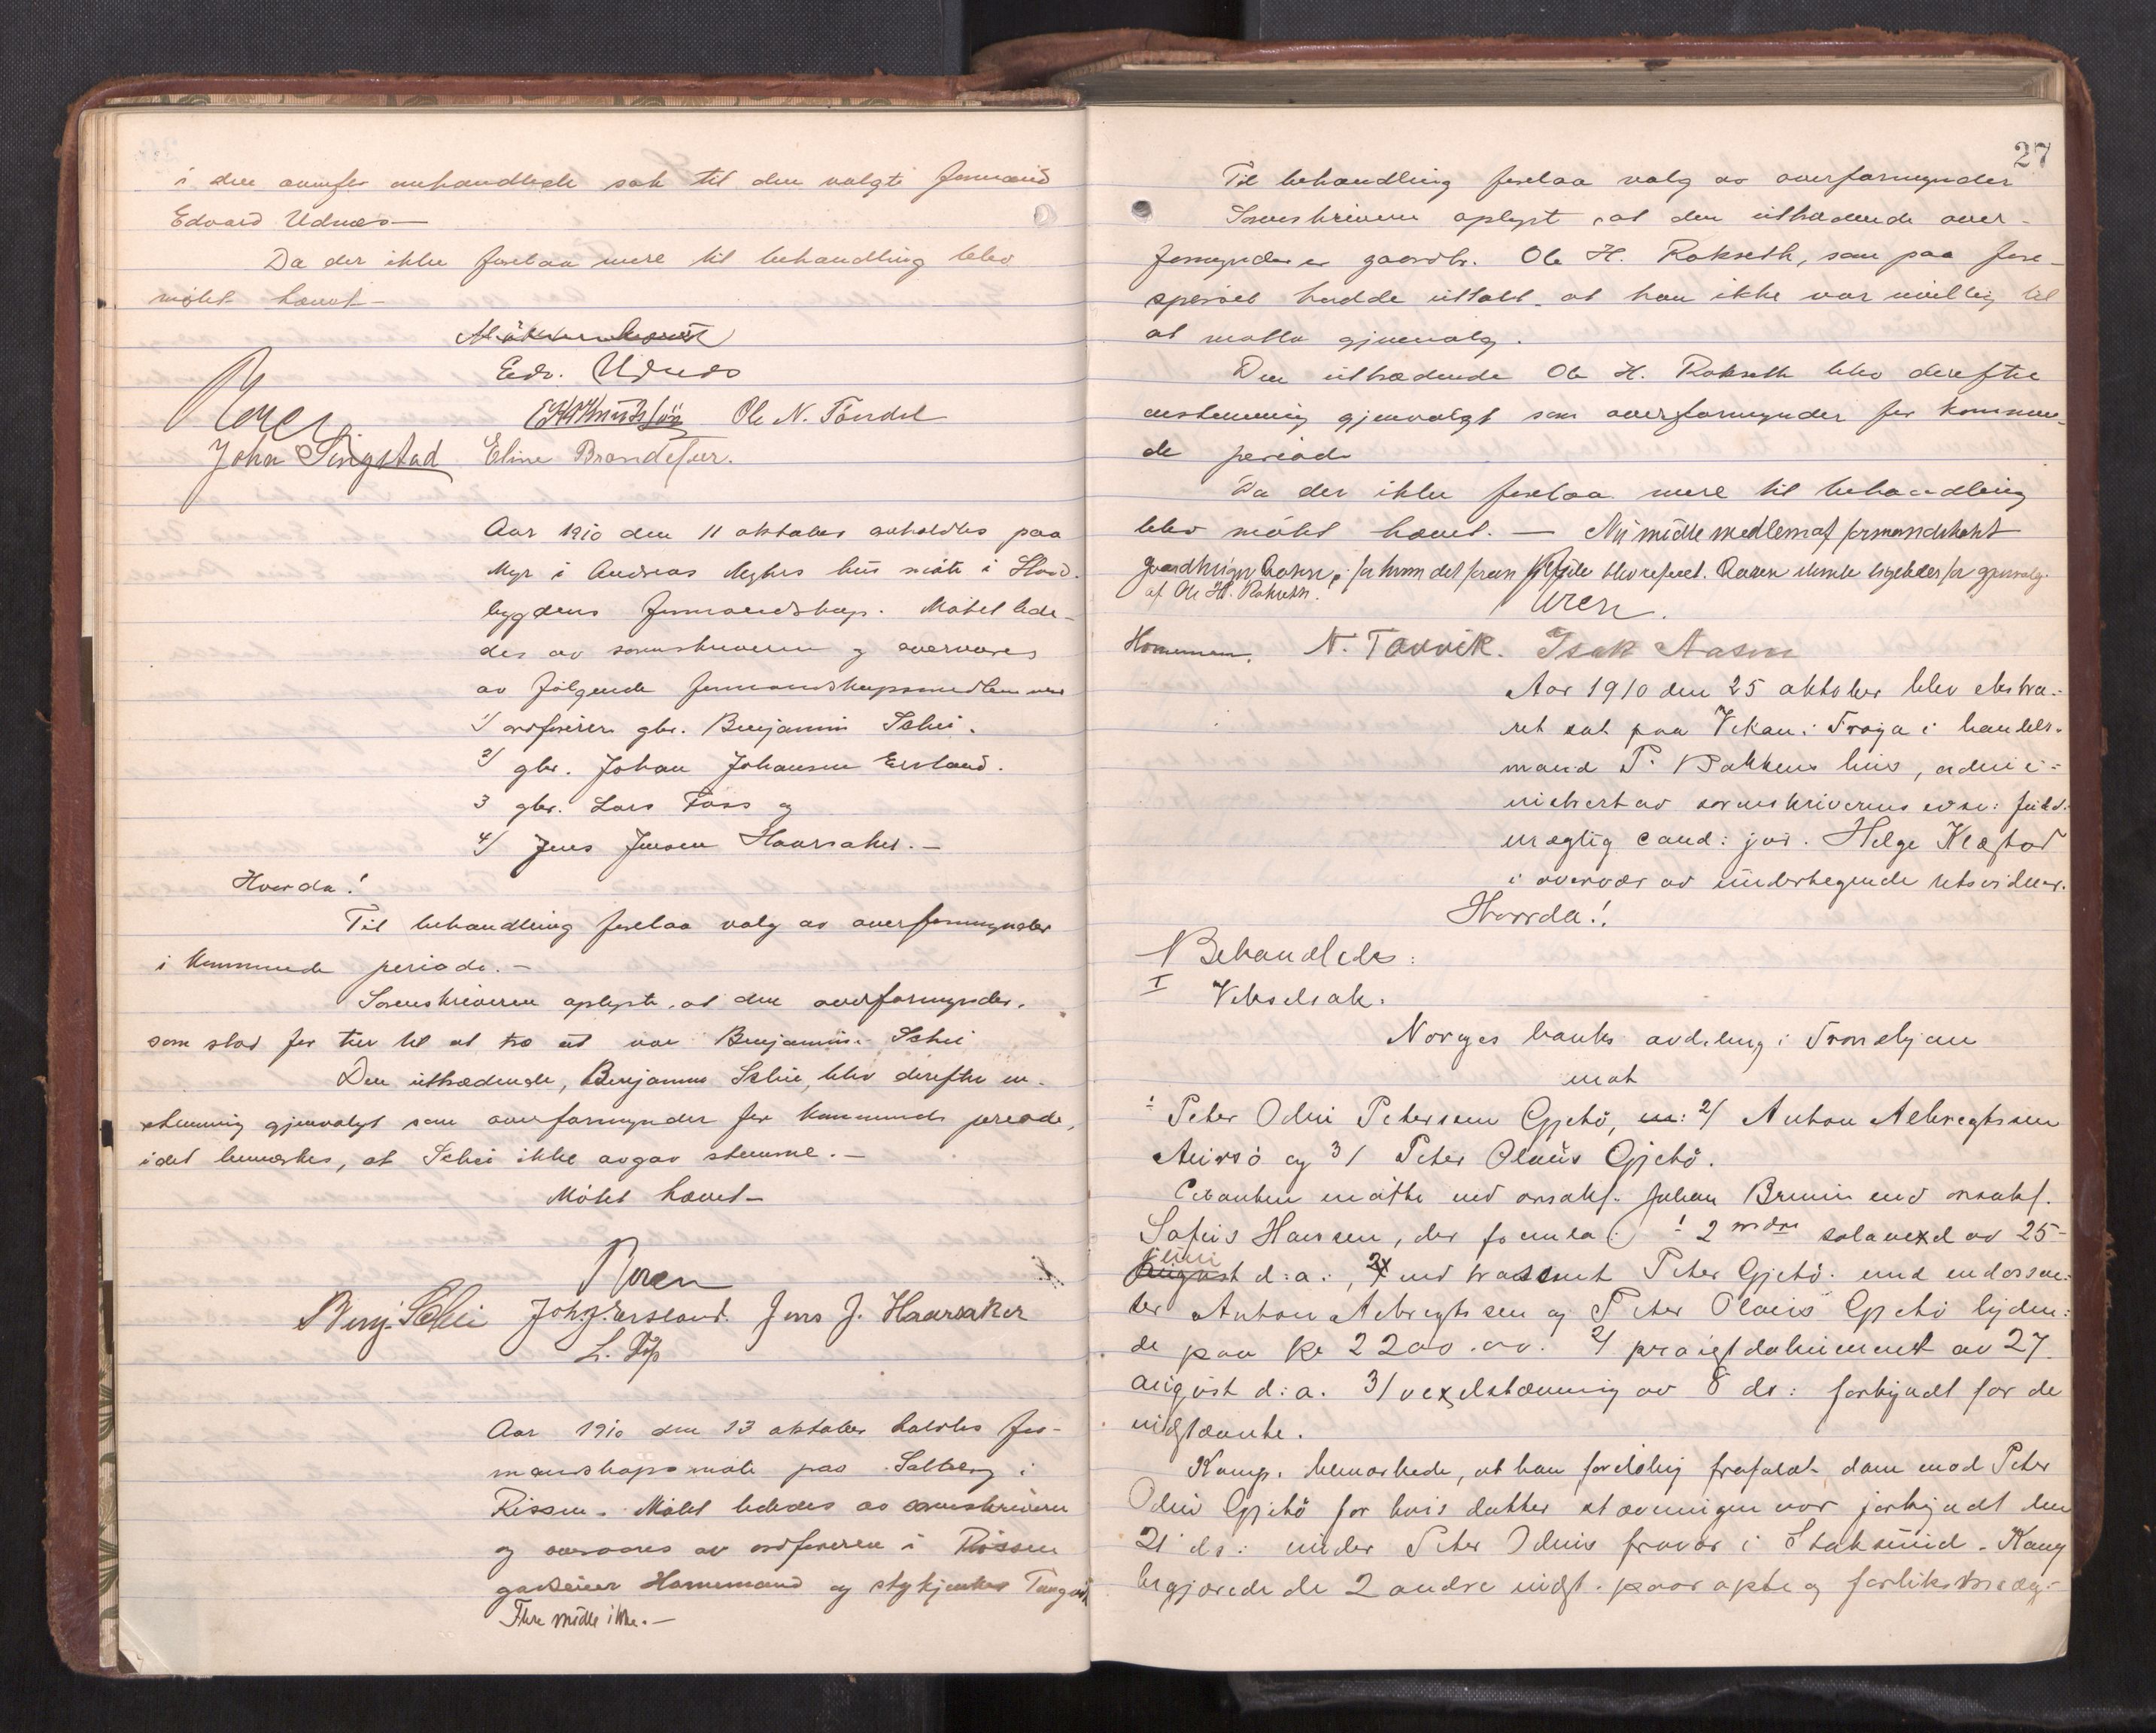 i den ovenfor omhandlede sak til den valgte formand
Edvard Udnæs
Da der ikke forelaa mere til behandling blev
møtet hævet
Edv. Udnæs
Ole N. Tøndel
John Singstad Eline Brandsfær.
Aar 1910 den 11 oktober avholdtes paa
Myr i Andreas Myhrs hus møte i Stad-
bygdens formandskap. Møtet lede-
des av sorenskriveren og overvares
av følgende formandskapsmedlemmer
1/ ordfører gbr. Benjamin Schei.
2/ gbr. Johan Johansen Ersland.
3 gbr. Lars Foss og
4/ Jens Jensen Haarsaker. —
Hvorda!
Til behandling forelaa valg av overformynder
i kommende periode. —
Sorenskriveren oplyste, at den overformynder,
som stod for tur til at træ ut var Benjamin Schei
Den uttrædende, Benjamin Schei, blev derefter en-
stemmig gjenvalgt som overformynder for kommende periode,
idet bemerkes, at Schei ikke avgav stemme. —
Møtet hævet —
Benj. Schei Joh. J. Ersland. Jens J. Haarsaker
L. Foss
Aar 1910 den 13 oktober holdtes for-
mandskapsmøte paa Solberg i
Rissen. Møtet lededes av sorenskriveren
og overvares av ordføreren i Rissen
gaardeier Hornemand og
Flere mødte ikke. —
27
Til behandling forelaa valg av overformynder
Sorenskriveren oplyst, at den uttrædende over-
formynder er gaardbr. Ole H. Rokseth, som paa fore-
spørsel hadde uttalt at han ikke var uvillig til
at motta gjenvalg.
Den uttrædende Ole H. Rokseth blev derefter
enstemmig gjenvalgt som overformynder for kommen-
de periode
Da der ikke forelaa mere til behandling
blev møtet hævet. — Nu mødte medlem af formandskabet
gaardbruger Aasen, for hvem det foran passerede blev referert. Aasen stemte ligeledes for gjenvalg
af Ole H. Rokseth.
Horneman. N. Taxvik. Isak Aasen
Aar 1910 den 25 oktober blev ekstra-
ret sat paa Vikan i Frøya i handels-
mand P. Bakkens hus, admi-
nistrert av sorenskriverens edsv: fuld-
mægtig cand: jur. Helge Klæstad
i overvær av undertegnede retsvidner.
Hvorda!
Behandledes:
I Vekselsak.
Norges banks avdeling i Trondhjem
mot
1 Peter Odin Petersen Gjetø, 2/ Anton Albregtsen
Auersø og 3/ Peter Olaus Gjetø.
Citanten møtte ved orsakf. Johan Bruun ved orsakf.
Sofus Hansen, der fremla: 1 2 mdrs solavexel av 25-
juni
august d: a:, med trassent Peter Gjetø: med endossen-
ter Anton Albregtsen og Peter Olaus Gjetø lyden-
de paa kr 2200.00. 2/ protestdokument av 27.
august d: a. 3/ vexelstævning av 8 ds: forkyndt for de
indstævnte.
Komp. bemærkede, at han foreløbig frafaldt dom mod Peter
Odin Gjetø for hvis datter stævningen var forkyndt den
21 ds: under Peter Odins fravær i Stoksund. Komp
begjærede de 2 andre indst. paaropte og forliksmæg-